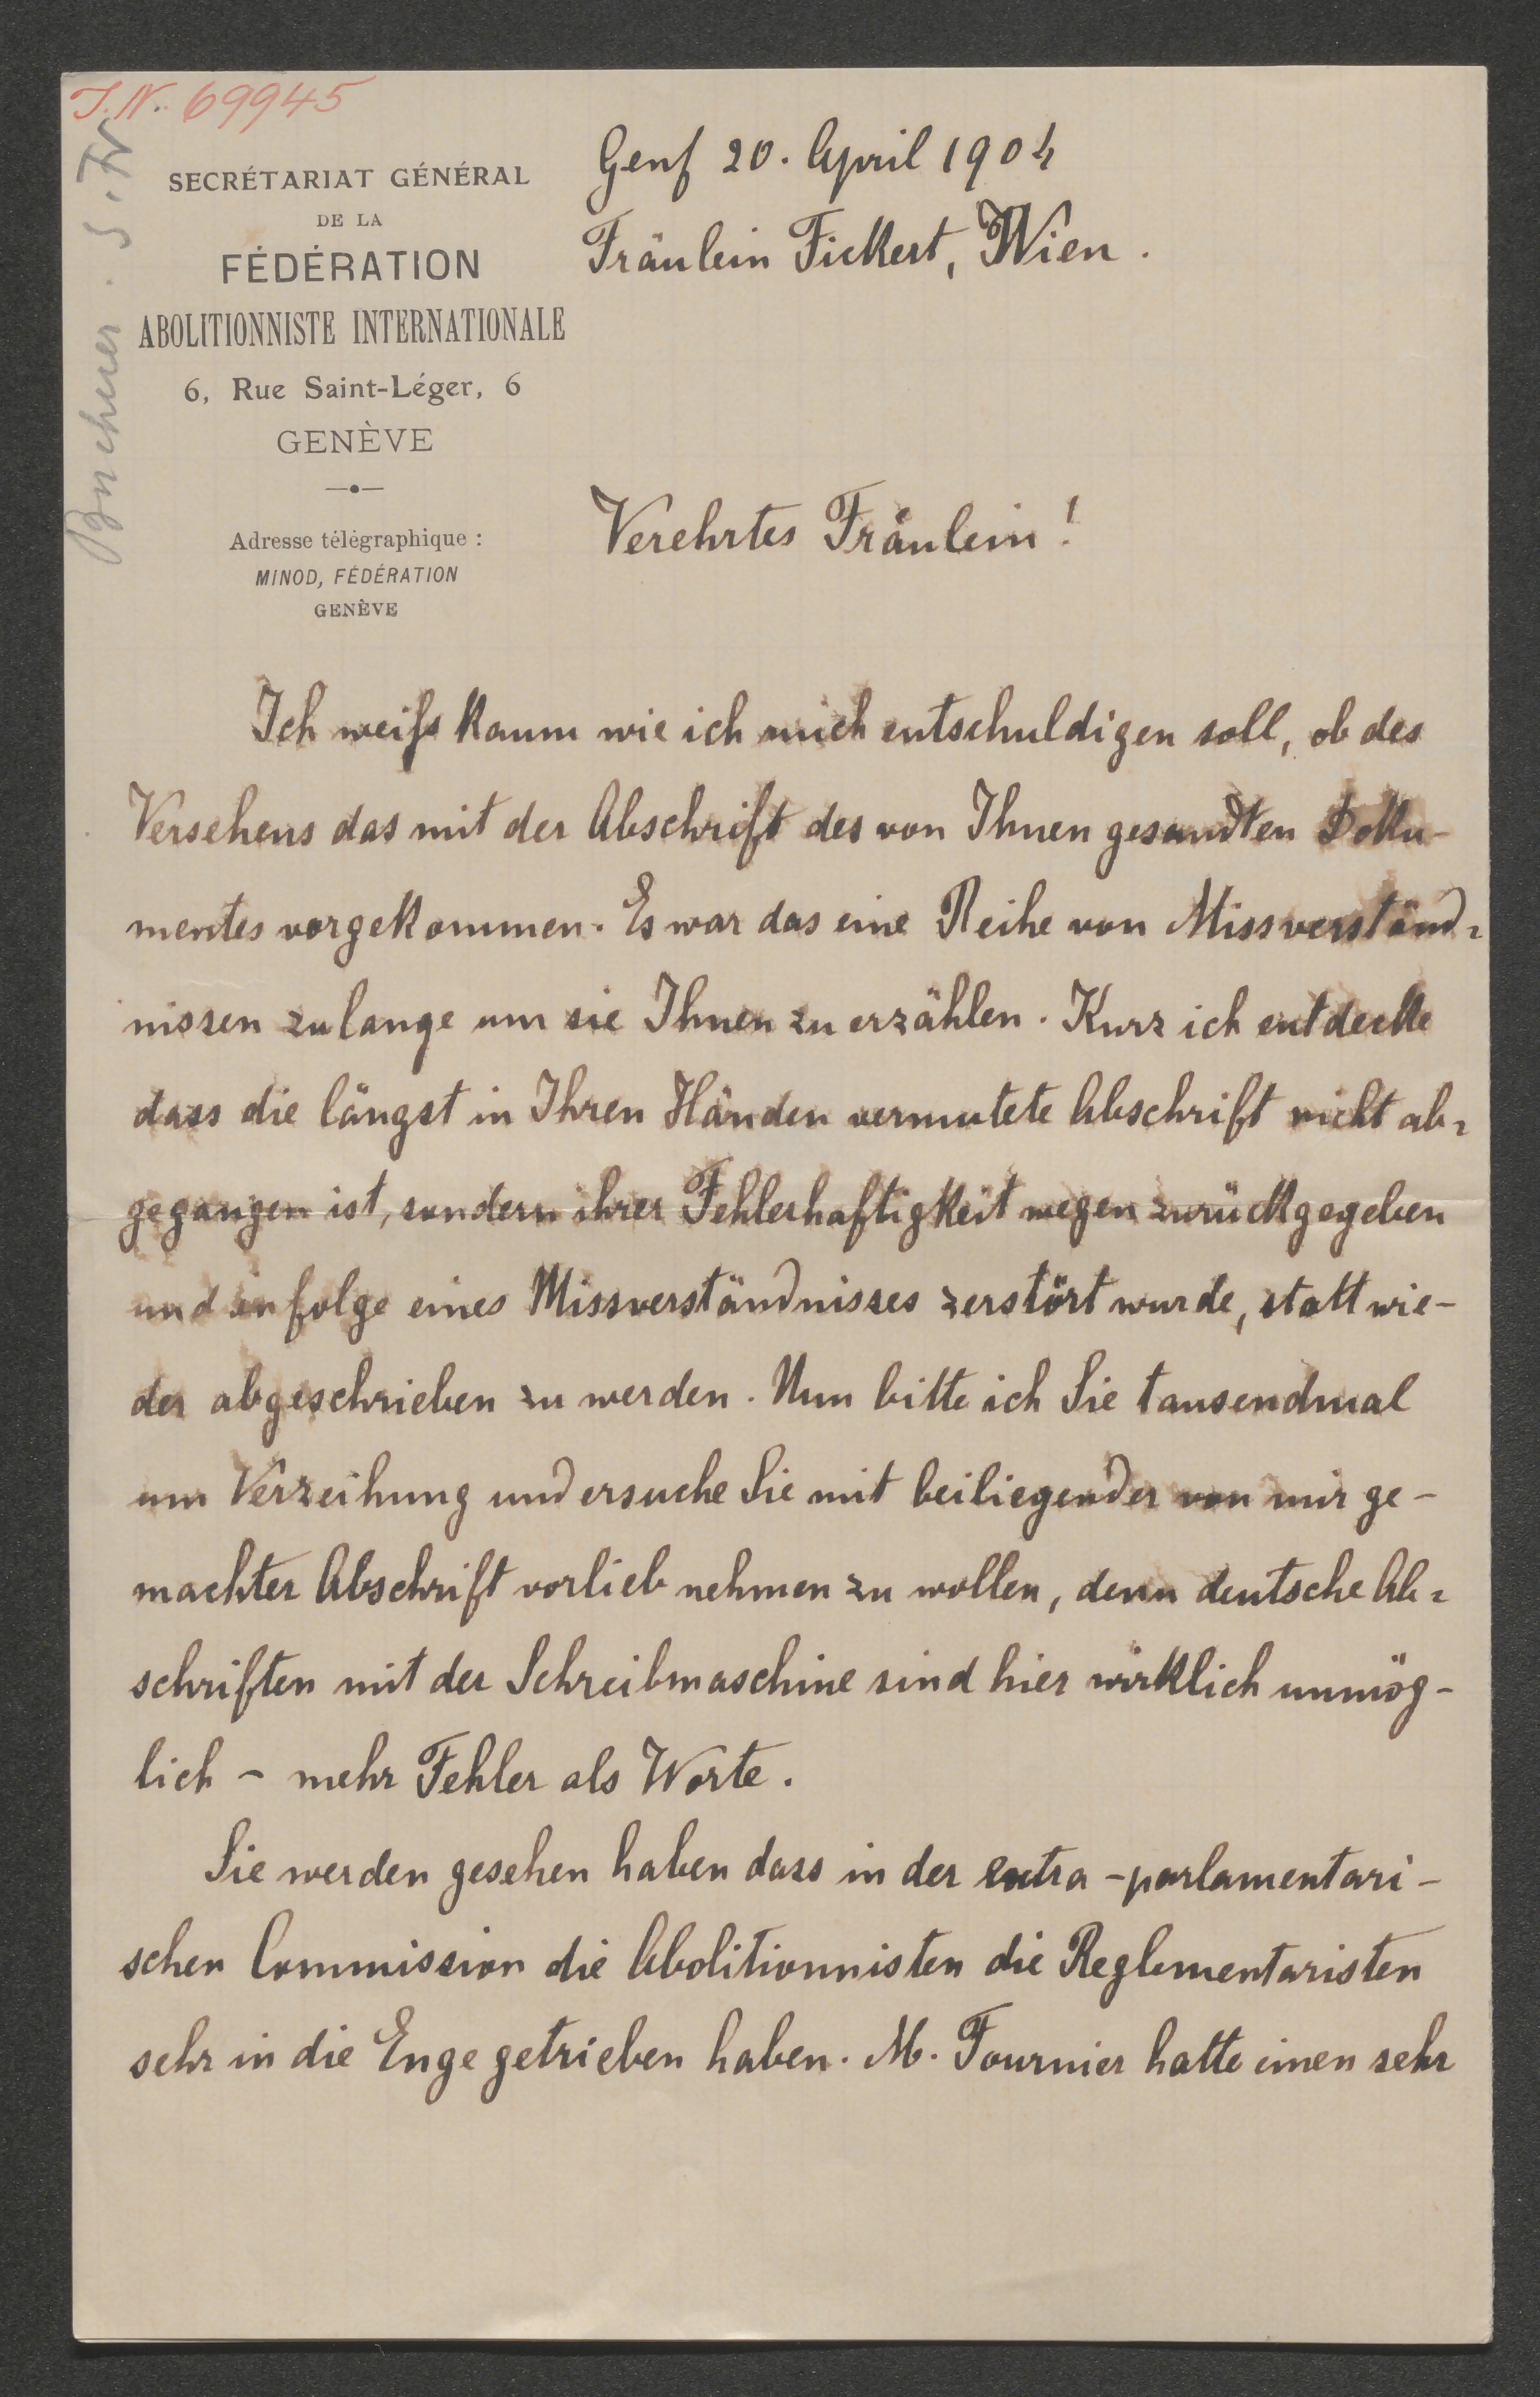 J. N. 69945
SECRÉTARIAT GÉNÉRAL
DE LA
FÉDÉRATION
ABOLITIONNISTE INTERNATIONALE
6, Rue Saint-Léger, 6
GENÈVE
Adresse télégraphique :
MINOD, FÉDÉRATION
GENÈVE
Genf 20. April 1904
Fräulein Fickert, Wien.
Verehrtes Fräulein!
Ich weiß kaum wie ich mich entschuldigen soll, ob des
Versehens das mit der Abschrift des von Ihnen gesandten Doku-
mentes vorgekommen. Es war das eine Reihe von Missverständ=
nissen zu lange um sie Ihnen zu erzählen. Kurz ich entdeckte
dass die längst in Ihren Händen vermutete Abschrift nicht ab=
gegangen ist, sondern ihrer Fehlerhaftigkeit wegen zurückgegeben
und infolge eines Missverständnisses zerstört wurde, statt wie-
der abgeschrieben zu werden. Nun bitte ich Sie tausendmal
um Verzeihung und ersuche Sie mit beiliegender von mir ge-
machter Abschrift vorlieb nehmen zu wollen, denn deutsche Ab=
schriften mit der Schreibmaschine sind hier wirklich unmög-
lich - mehr Fehler als Worte.
Sie werden gesehen haben dass in der extra-parlamentari-
schen Commission die Abolitionnisten die Reglementaristen
sehr in die Enge getrieben haben. M. Fournier hatte einen sehr